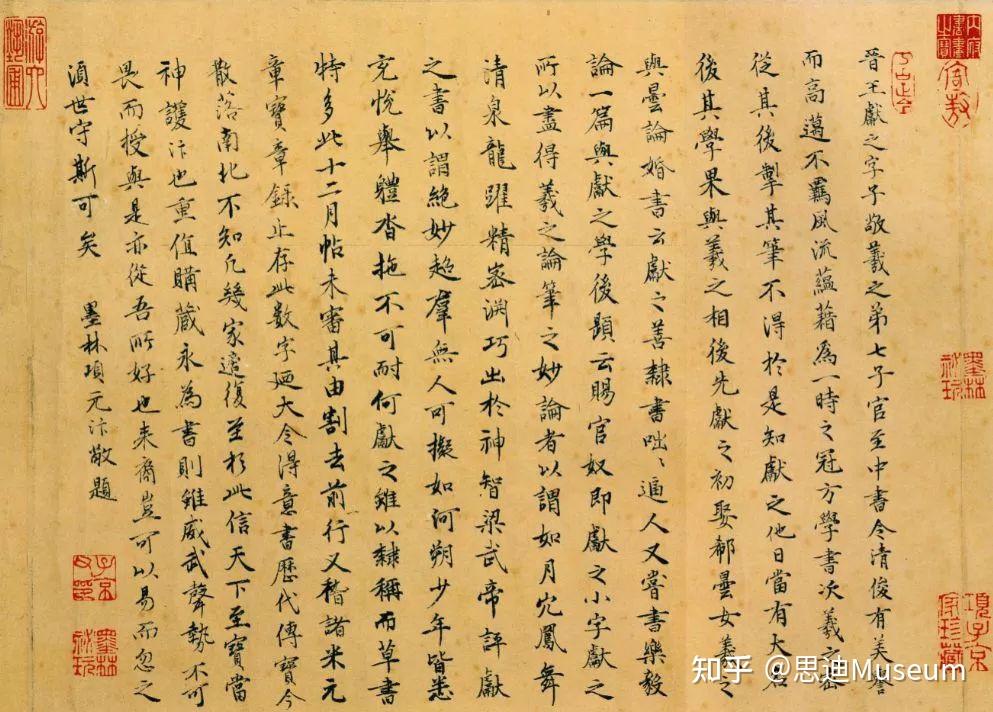 晉王獻之字子敬羲之弟七子官至中書令清俊有美譽
而高邁不羈風流蘊藉為一時之冠方學書次羲之密
從其後掣其筆不得於是知獻之他日當有大名
後其學果與羲之相後先獻之初娶郗曇女羲之
與曇論婚書云獻之善隸書咄咄逼人又嘗書樂毅
論一篇與獻之學後題云賜官奴即獻之小字獻之
所以盡得羲之論筆之妙論者以謂如月穴鳳舞
清泉龍躍精密淵巧出於神智梁武帝評獻
之書以謂絕妙超群無人可擬如河朔少年皆悉
充悅舉體沓拖不可耐何獻之雖以隸稱而草書
特多此十二月帖未審其由割去前行又稽諸米元
章寶章錄止存此數字廼大令得意書歷代傳寶今
散落南北不知凡幾家邅復至於此信天下至寶當
神護汴也重值購藏永為書則雖威武聲勢不可
畏而授與是亦從吾所好也來裔豈可以易而忽之
須世守斯可矣 墨林項元汴敬題
內府書畫之寶
墨林祕玩
項子京家珍藏
子京父印
墨林祕玩
知乎 @思迪Museum